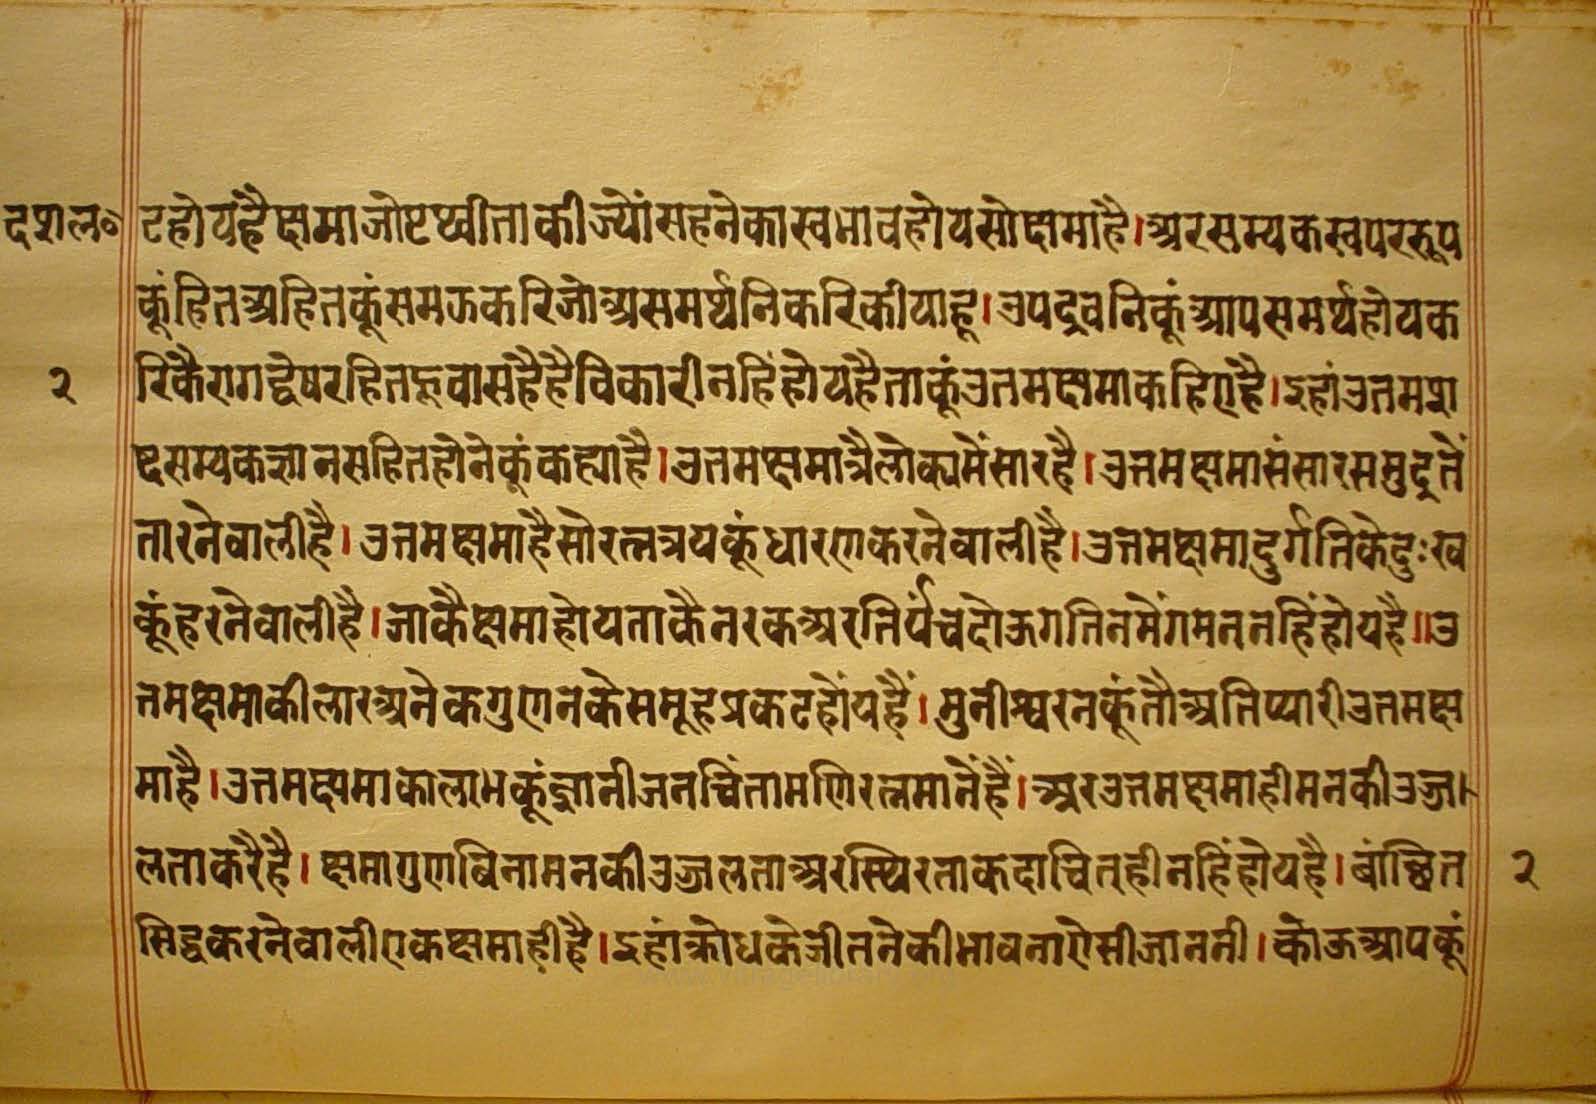 दशल० टहोयहैक्षमाजोष्टथ्वीताकीज्योंसहनेकास्वभावहोयसोक्षमाहै।अरसम्यकस्वपररूप
कूंहितअहितकूंसमऊकरिजोअसमर्थनिकरिकीयाहू।उपद्रवनिकूंआपसमर्थहोयक
२ रिकैरागद्वेषरहितहूवासहैहैविकारीनहिंहोयहैताकूंउतमक्षमाकहिएहै।इहांउतमश
ष्दसम्यकज्ञानसहितहोनेकूंकह्याहै।उतमक्षमात्रैलोक्यमेंसारहै।उत्तमक्षमासंसारसमुद्रतें
तारनेवालीहै।उत्तमक्षमाहैसोरत्नत्रयकूंधारणकरनेवालीहै।उत्तमक्षमादुर्गतिकेदुःख
कूंहरनेवालीहै।जाकैक्षमाहोयताकैनरकअरतिर्यंचदोऊगतिनमेंगमननहिंहोयहै॥उ
त्तमक्षमाकीलारअनेकगुणनकेसमूहप्रकटहोंयहैं।मुनीश्वरनकूंतौअतिप्यारीउतमक्ष
माहै।उत्तमक्षमाकालाभकूंज्ञानीजनचिंतामणिरत्नमानेंहैं।अरउत्तमक्षमाहीमनकीउज्ज
लताकरैहै।क्षमागुणबिनामनकीउज्जलताअरस्थिरताकदाचित्हीनहिंहोयहै।बांछित २
सिद्धकरनेवालीएकक्षमाहीहै।इहांक्रोधकेजीतनेकीभावनाऐसीजाननी।कोऊआपकूं